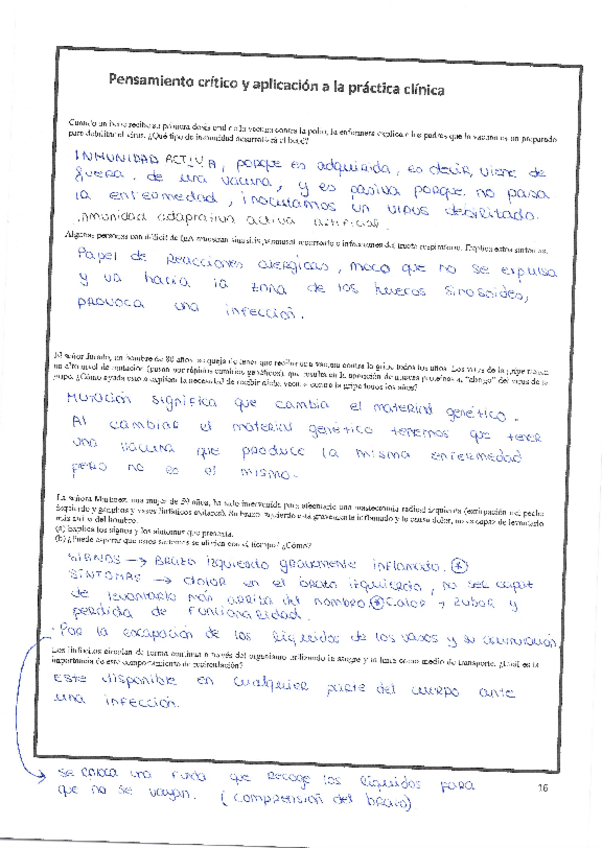 Pensamiento crítico y aplicación a la práctica clínica
Cuando un bebé recibe su primera dosis oral de la vacuna contra la polio, la enfermera explica a los padres que la vacuna es un preparado
para debilitar el virus. ¿Qué tipo de inmunidad desarrollará el bebé?
INMUNIDAD ACTIVA, porque es adquirida, es decir, viene de
fuera, de una vacuna, y es pasiva porque no pasa
la enfermedad, inoculamos un virus debilitado.
inmunidad adaptativa activa artificial.
Algunas personas con déficit de IgA muestran sinusitis paranasal recurrente e infecciones del tracto respiratorio. Explica estos síntomas.
Papel de Reacciones alergicas, moco que no se expulsa
y va hacia la zona de los huesos sinosoides,
provoca una infección.
El señor un hombre de 80 años, se queja de tener que recibir una vacuna contra la gripe todos los años. Los virus de la gripe tienen
un alto nivel de mutación (pasan por rápidos cambios genéticos), que resulta en la aparición de nuevas proteínas "abrigo" del virus de la
gripe. ¿Cómo ayuda esto a explicar la necesidad de recibir una vacuna contra la gripe todos los años?
Mutación significa que cambia el material genético.
Al cambiar el material genético tenemos que tener
una vacuna que produce la misma enfermedad
pero no es el mismo.
La señora Martínez, una mujer de 50 años, ha sido intervenida para efectuarle una mastectomía radical izquierda (extirpación del pecho
izquierdo y ganglios y vasos linfáticos axilares). Su brazo izquierdo está gravemente inflamado y le causa dolor, no es capaz de levantarlo
más arriba del hombro.
(a) Explica los signos y los síntomas que presenta.
(b) ¿Puede esperar que estos síntomas se alivien con el tiempo? ¿Cómo?
SIGNOS → Brazo izquierdo gravemente inflamado. +
SÍNTOMAS → dolor en el brazo izquierdo, no ser capaz
de levantarlo más arriba del hombro. + Calor, rubor y
perdida de funcionalidad.
- Por la escapación de los líquidos de los vasos y su acumulación.
Los linfocitos circulan de forma continua a través del organismo utilizando la sangre y la linfa como medio de transporte. ¿Cuál es la
importancia de este comportamiento de recirculación?
Este disponible en cualquier parte del cuerpo ante
una infección.
se coloca una funda que recoge los líquidos para
que no se vayan. (comprensión del brazo)
16